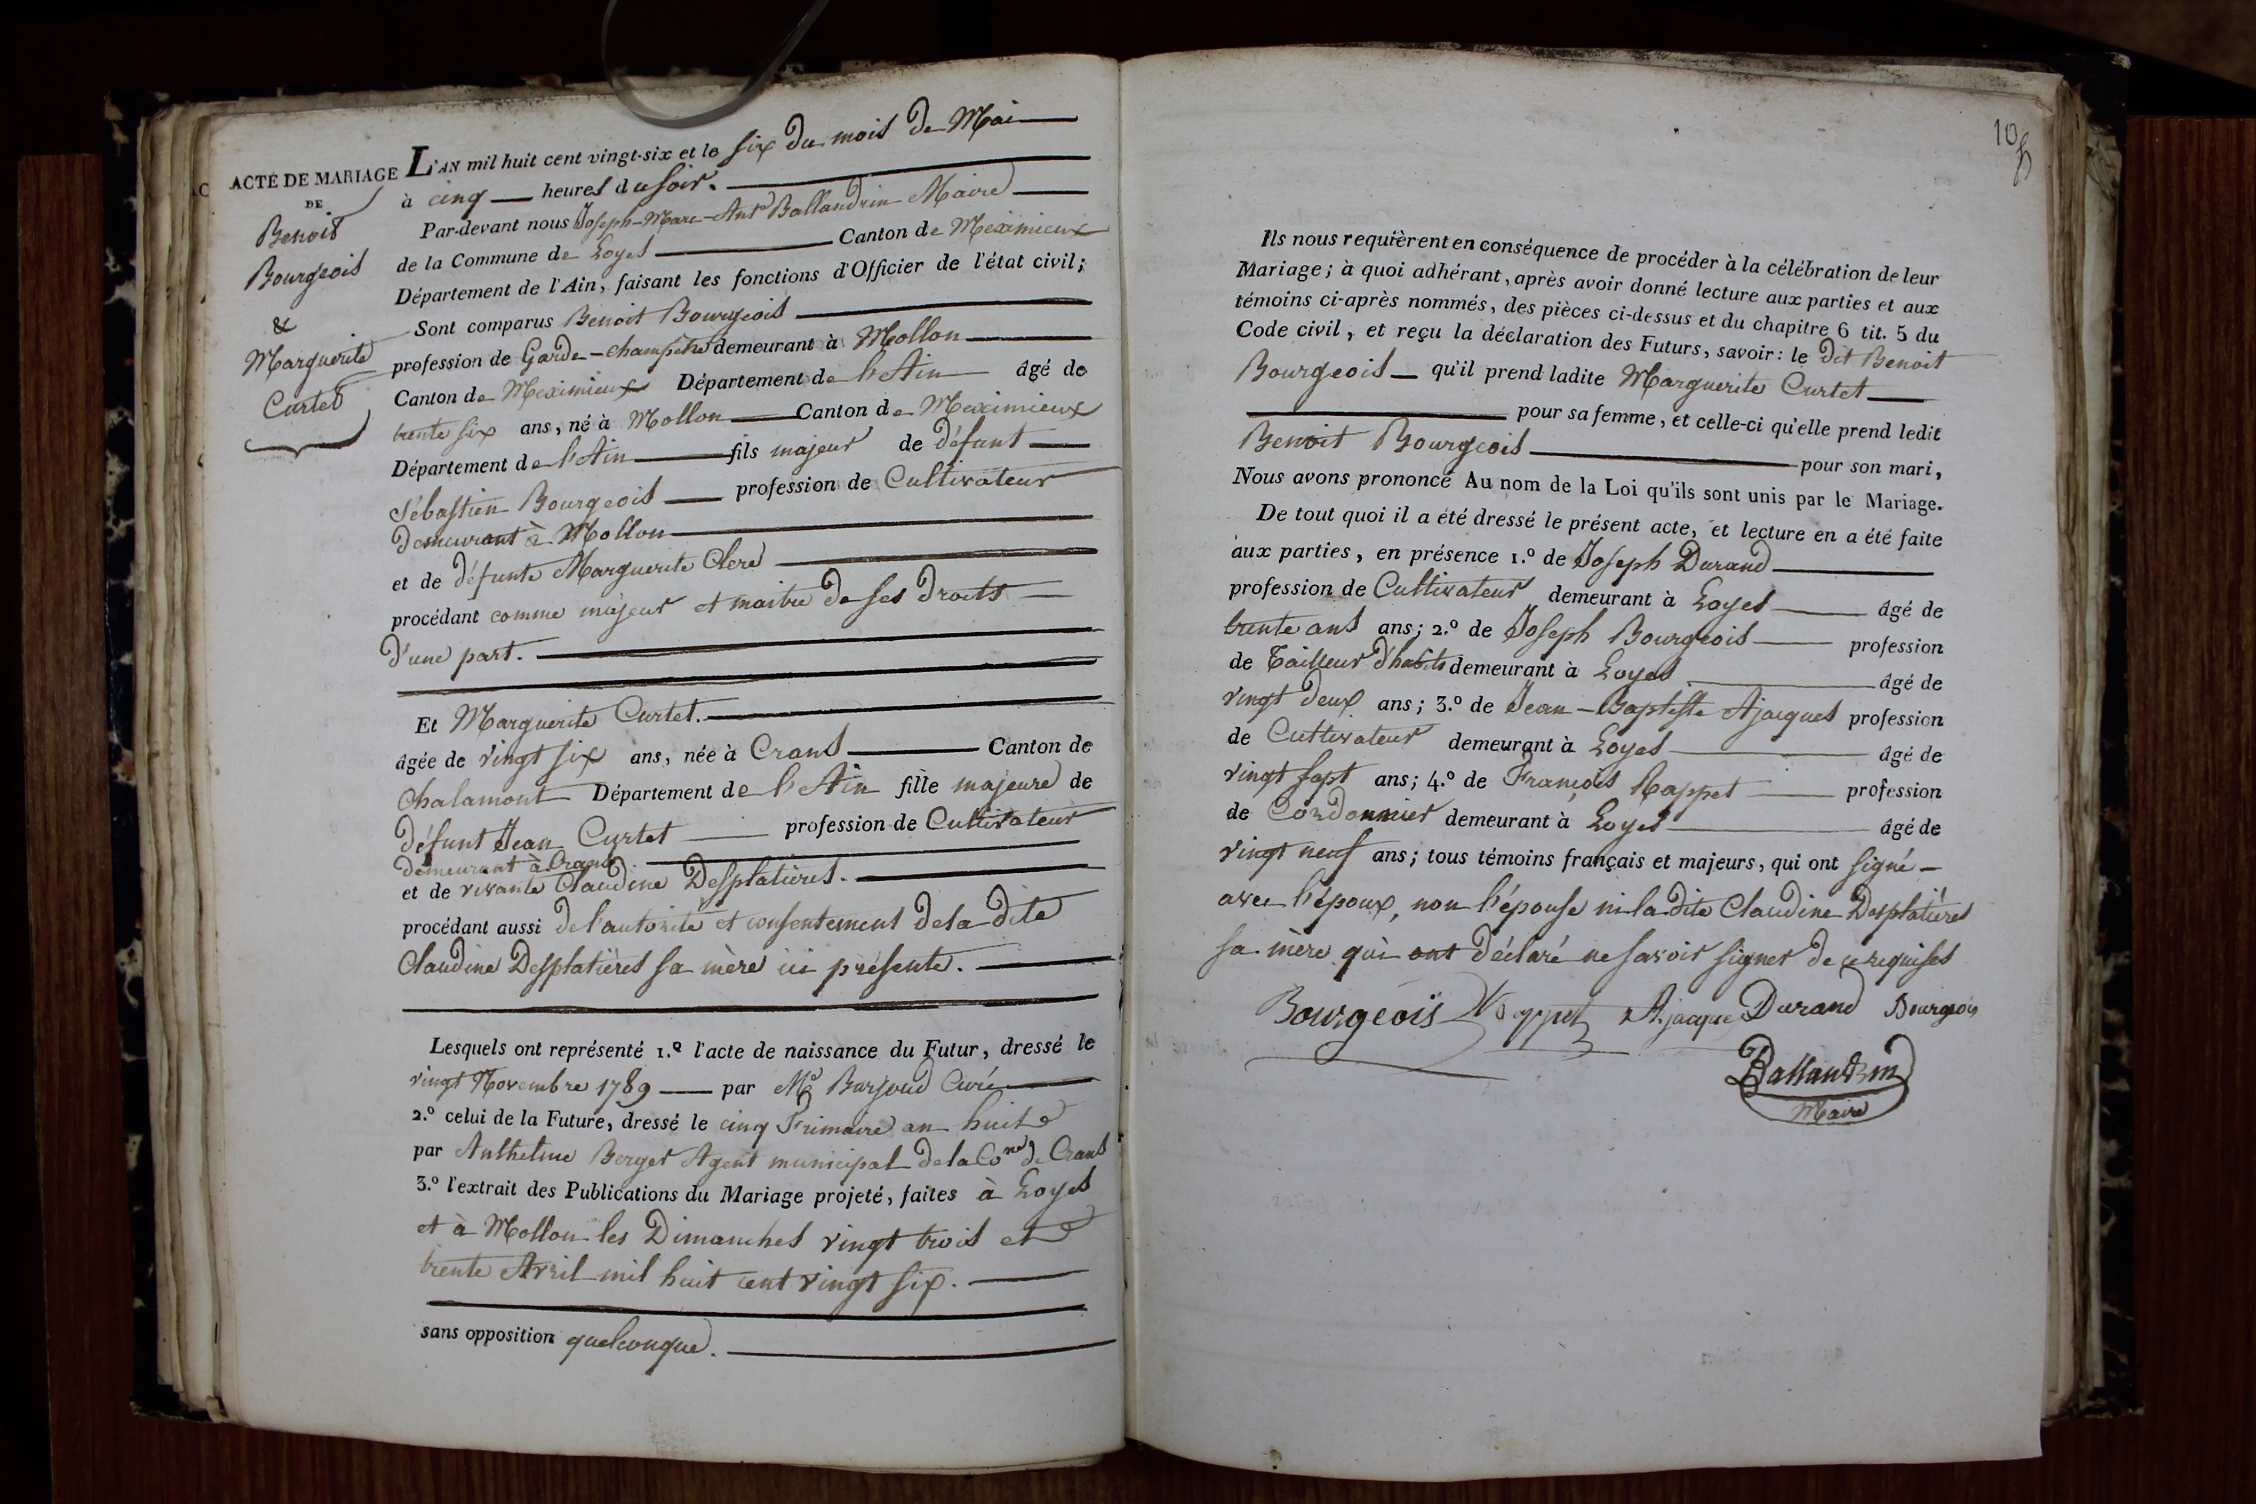 ACTE DE MARIAGE
DE
Benoit
Bourgeois
&
Marguerite
Curtet
L'AN mil huit cent vingt-six et le six du mois de Mai
à cinq heures du soir.
Par-devant nous Joseph-Marc-Ant.e Ballandrin Maire
de la Commune de Loyes Canton de Meximieux
Département de l'Ain, faisant les fonctions d'Officier de l'état civil;
Sont comparus Benoit Bourgeois
profession de Garde-champetre demeurant à Mollon
Canton de Meximieux Département de l'Ain âgé de
trente six ans, né à Mollon Canton de Meximieux
Département de l'Ain fils majeur de défunt
Sébastien Bourgeois profession de Cultivateur
demeurant à Mollon
et de défunte Marguerite Clerc
procédant comme majeur et maitre de ses droits
d'une part.
Et Marguerite Curtet.
âgée de vingt six ans, née à Crans Canton de
Chalamont Département de l'Ain fille majeure de
défunt Jean Curtet profession de Cultivateur
demeurant à Crans
et de vivante Claudine Desplatières.
procédant aussi de l'autorité et consentement de la dite
Claudine Desplatières sa mère ici présente.
Lesquels ont représenté 1.º l'acte de naissance du Futur, dressé le
vingt Novembre 1789 par M.e Barjoud Curé
2.º celui de la Future, dressé le cinq Frimaire an huit
par Anthelme Berger Agent municipal de la Co.ne de Crans
3.º l'extrait des Publications du Mariage projeté, faites à Loyes
et à Mollon les Dimanches vingt trois et
trente Avril mil huit cent vingt six.
sans opposition quelconque.
10
Ils nous requièrent en conséquence de procéder à la célébration de leur
Mariage; à quoi adhérant, après avoir donné lecture aux parties et aux
témoins ci-après nommés, des pièces ci-dessus et du chapitre 6 tit. 5 du
Code civil, et reçu la déclaration des Futurs, savoir: le dit Benoit
Bourgeois qu'il prend ladite Marguerite Curtet
pour sa femme, et celle-ci qu'elle prend ledit
Benoit Bourgeois pour son mari,
Nous avons prononcé Au nom de la Loi qu'ils sont unis par le Mariage.
De tout quoi il a été dressé le présent acte, et lecture en a été faite
aux parties, en présence 1.º de Joseph Durand
profession de Cultivateur demeurant à Loyes âgé de
trente ans ans; 2.º de Joseph Bourgeois profession
de Tailleur d'habits demeurant à Loyes âgé de
vingt deux ans; 3.º de Jean-Baptiste Ajacques profession
de Cultivateur demeurant à Loyes âgé de
vingt sept ans; 4.º de François Rappet profession
de Cordonnier demeurant à Loyes âgé de
vingt neuf ans; tous témoins français et majeurs, qui ont signé
avec l'époux, non l'épouse ni la dite Claudine Desplatières
sa mère qui ont déclaré ne savoir signer de ce requises
Bourgeois Rappet Ajacque Durand Bourgeois
Ballandrin
Maire